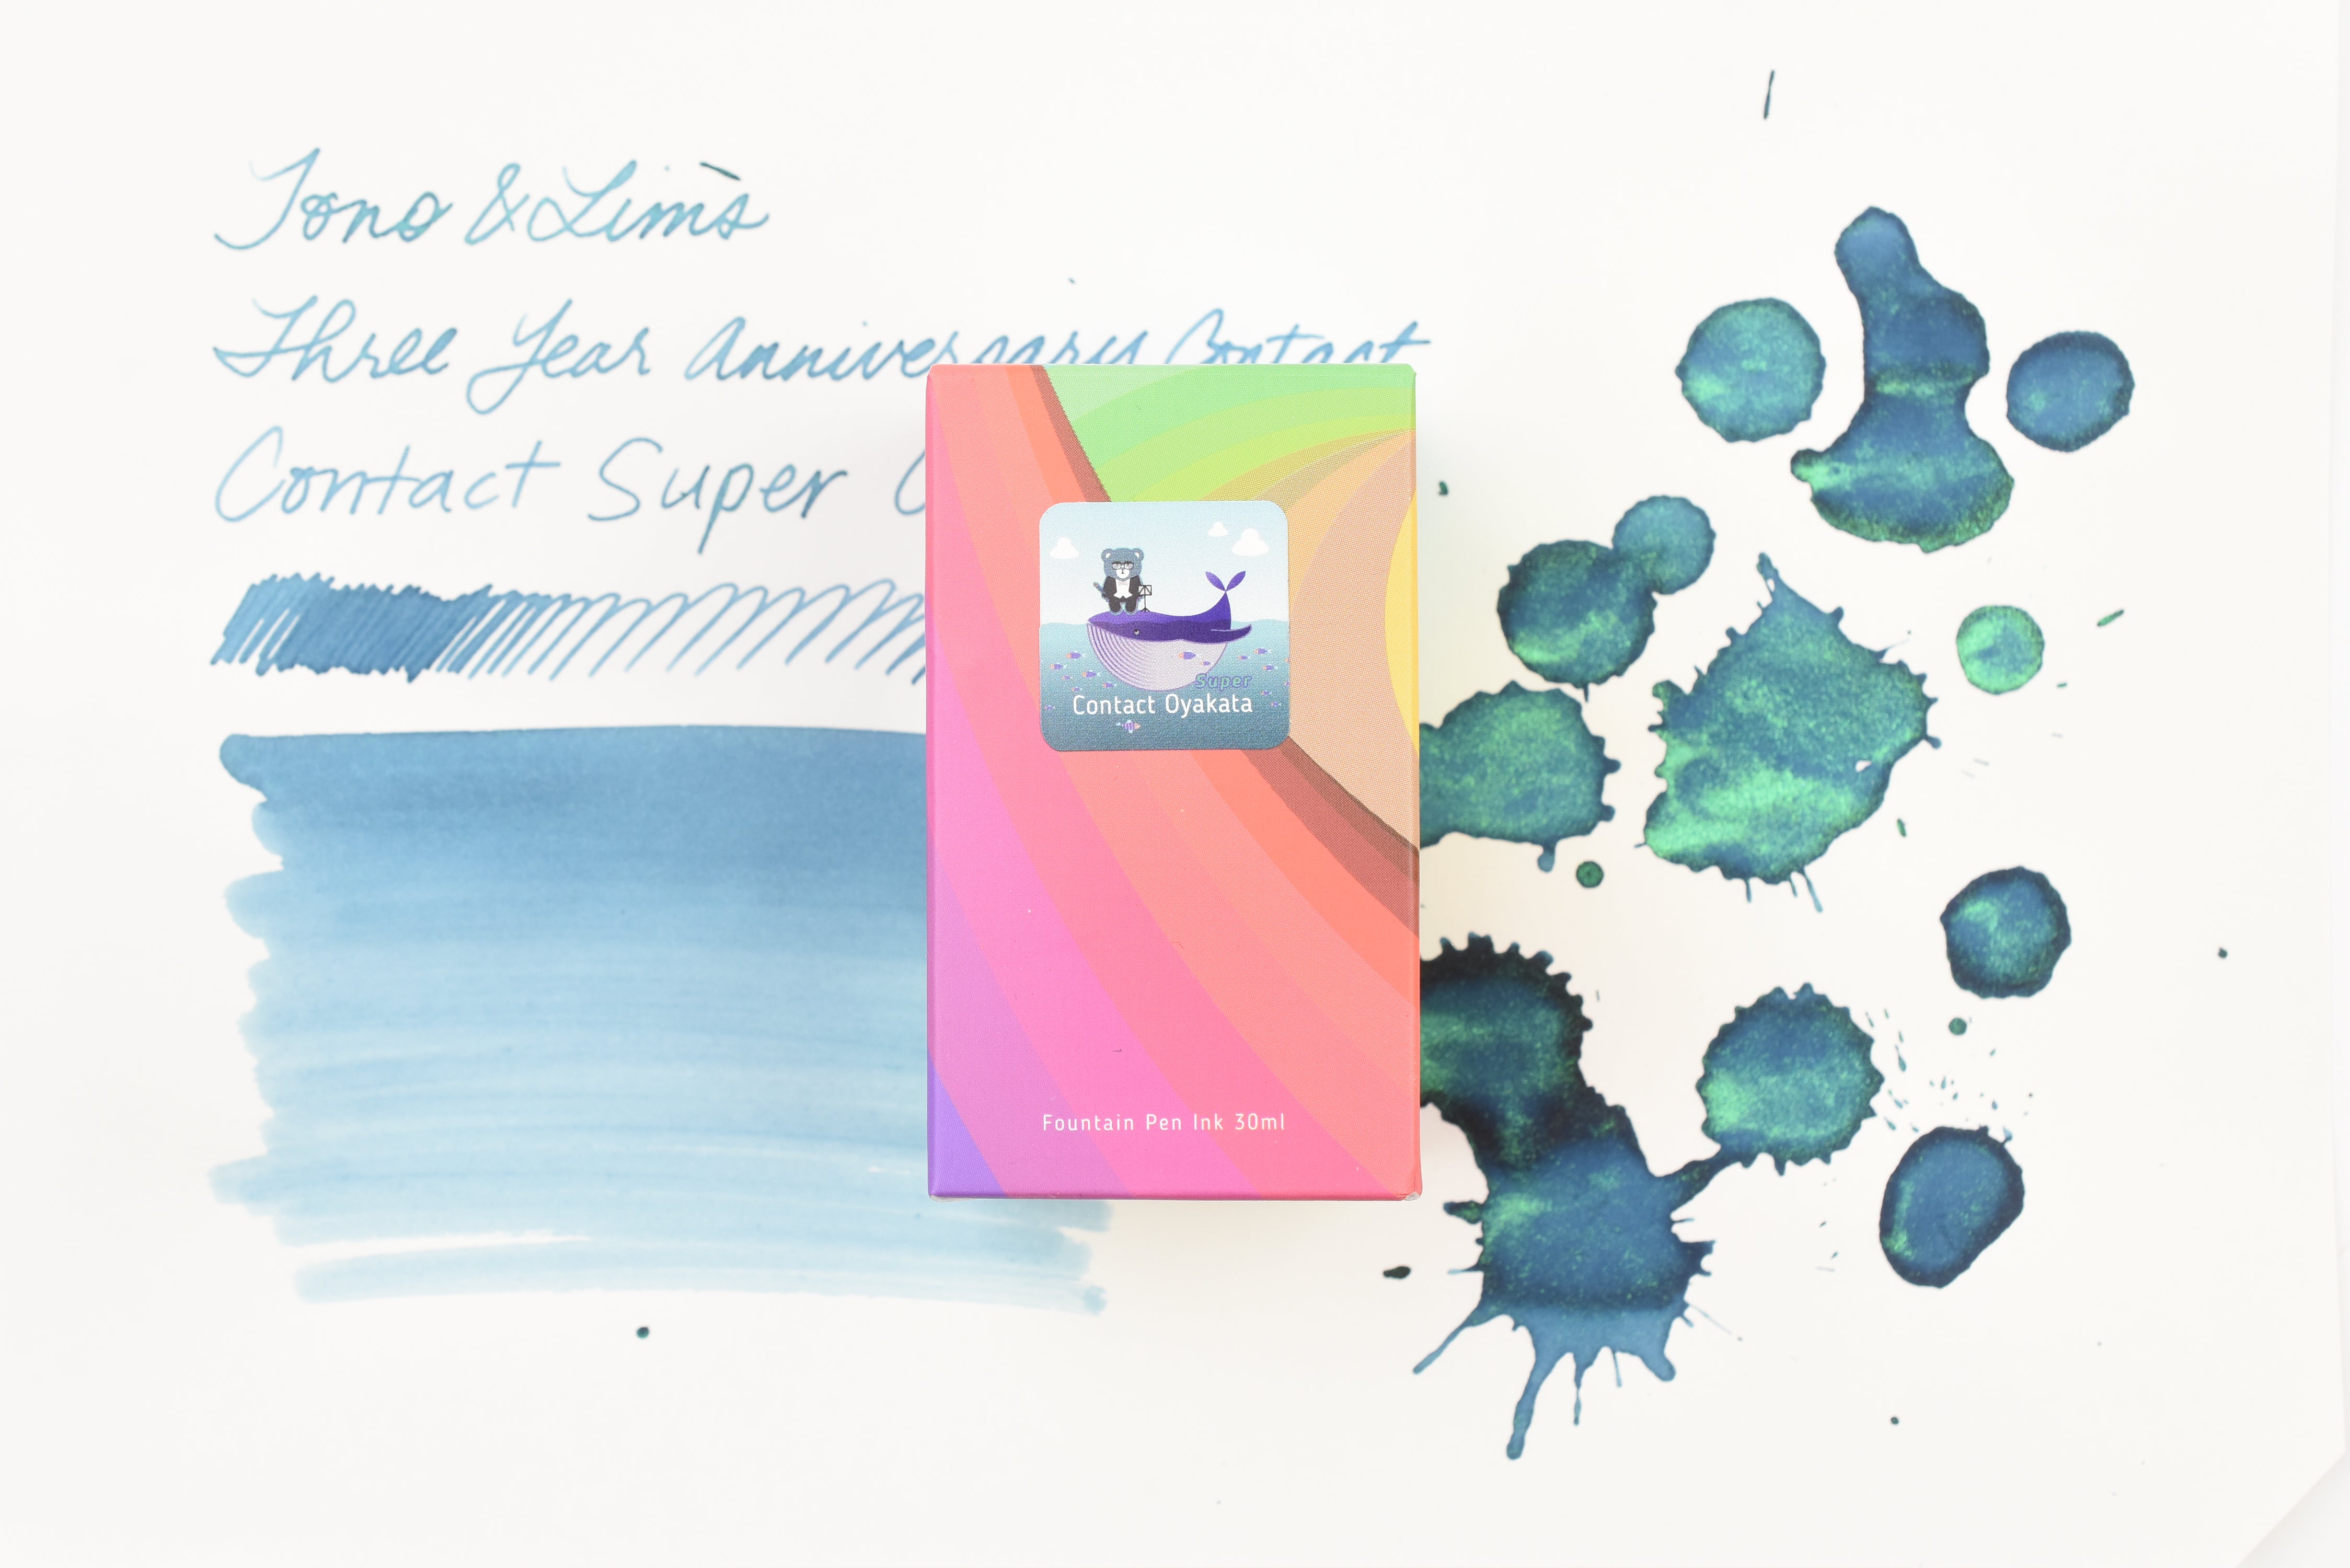 Tono & Lim's
Three Year Anniversary Contact
Contact Super
Super
Contact Oyakata
Fountain Pen Ink 30ml